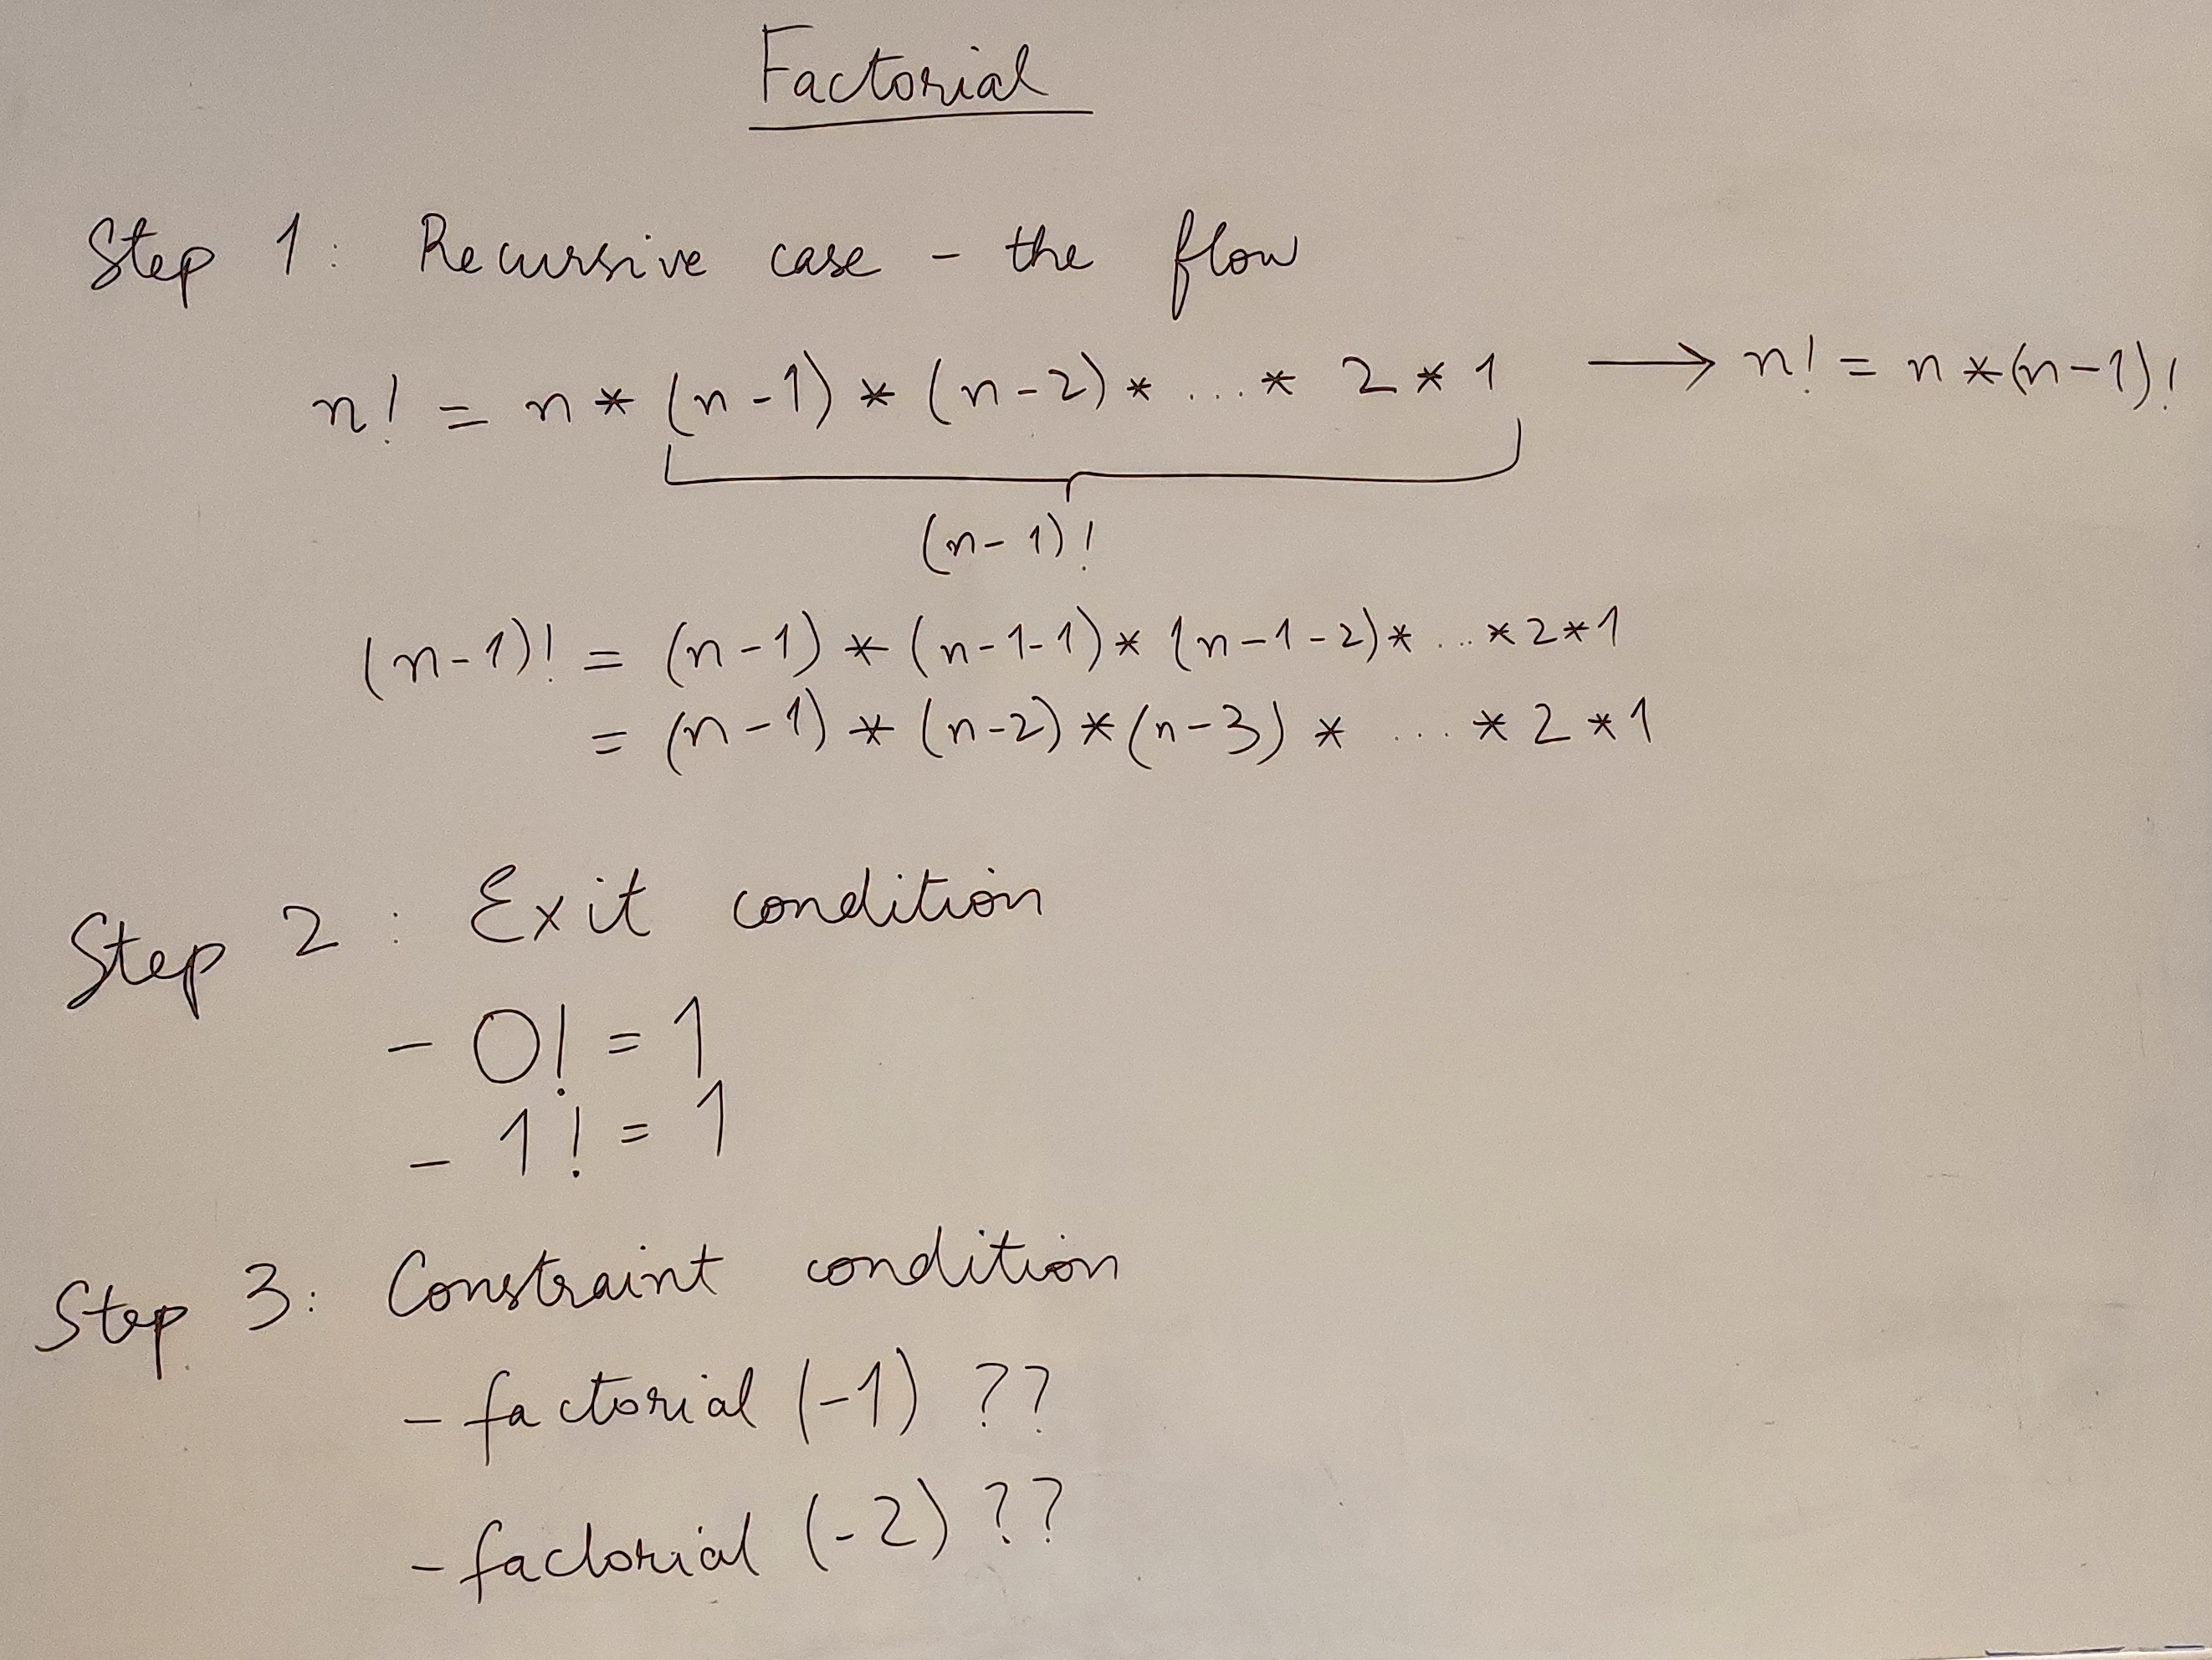 Factorial
Step 1: Recursive case - the flow
n! = n * (n-1) * (n-2) * ... * 2 * 1 → n! = n * (n-1)!
(n-1)!
(n-1)! = (n-1) * (n-1-1) * (n-1-2) * ... * 2 * 1
= (n-1) * (n-2) * (n-3) * ... * 2 * 1
Step 2: Exit condition
- 0! = 1
- 1! = 1
Step 3: Constraint condition
- factorial (-1) ??
- factorial (-2) ??